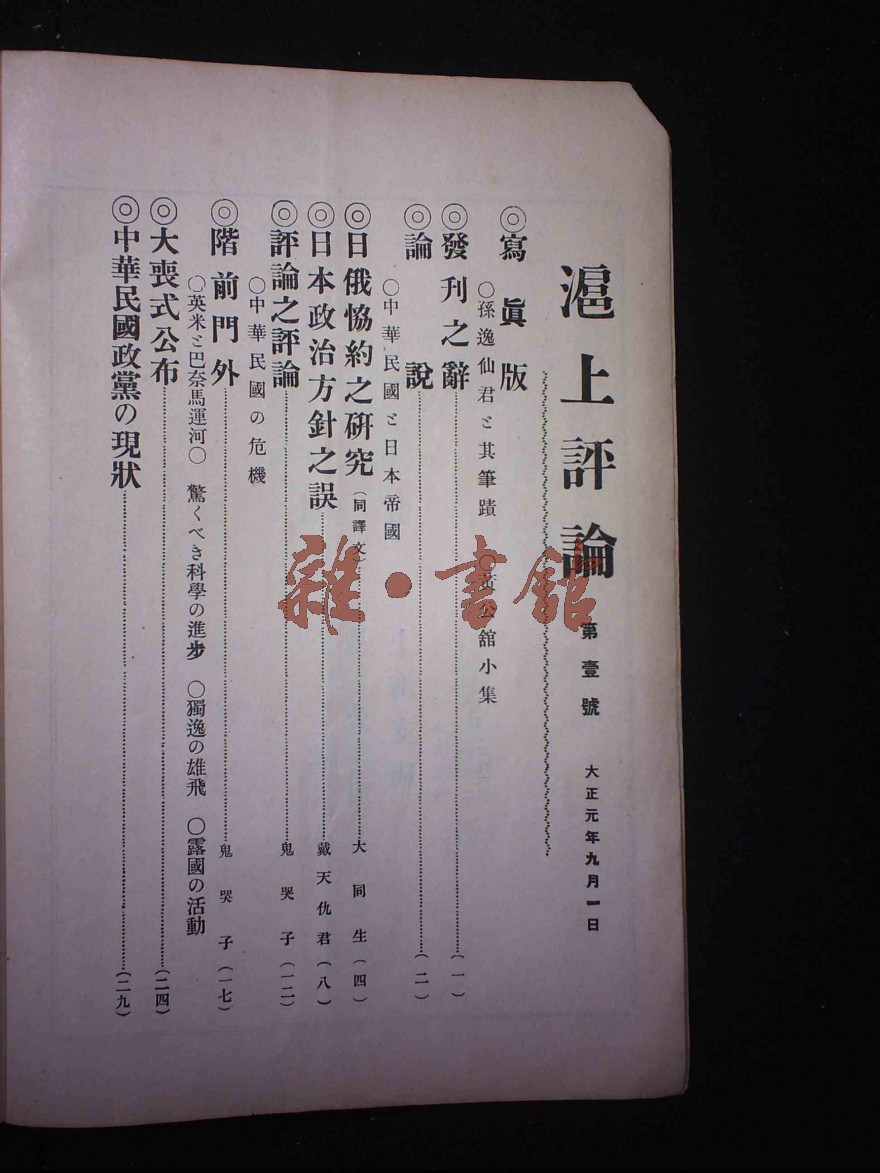 滬上評論 第壹號 大正元年九月一日
◎寫眞版
○孫逸仙君と其筆蹟 ○黃公舘小集
◎發刊之辭(一)
◎論說(二)
○中華民國と日本帝國
◎日俄恊約之硏究(同譯文)大同生(四)
◎日本政治方針之誤戴天仇君(八)
◎評論之評論鬼哭子(一二)
○中華民國の危機
◎階前門外鬼哭子(一七)
○英米と巴奈馬運河○ 驚くべき科學の進步 ○獨逸の雄飛 ○露國の活動
◎大喪式公布(二四)
◎中華民國政黨の現狀(二九)
雜·書舘